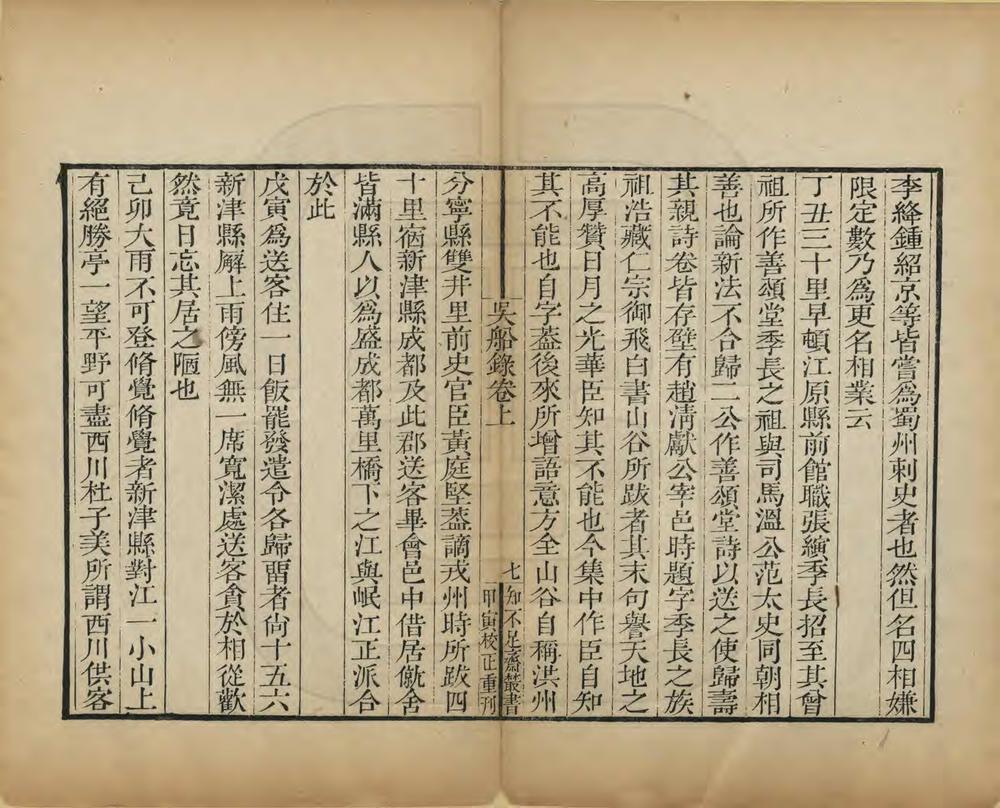 李絳鍾紹京等皆嘗爲蜀州刺史者也然但名四相嫌
限定數乃爲更名相業云
丁丑三十里早頓江原縣前館職張縯季長招至其曾
祖所作善頌堂季長之祖與司馬溫公范太史同朝相
善也論新法不合歸二公作善頌堂詩以送之使歸壽
其親詩卷皆存壁有趙清獻公宰邑時題字季長之族
祖浩藏仁宗御飛白書山谷所跋者其末句譽天地之
高厚贊日月之光華臣知其不能也今集中作臣自知
其不能也自字蓋後來所增語意方全山谷自稱洪州
吳船錄卷上
七
知不足齋叢書
甲寅校正重刊
分寧縣雙井里前史官臣黃庭堅蓋謫戎州時所跋四
十里宿新津縣成都及此郡送客畢會邑中借居僦舍
皆滿縣人以爲盛成都萬里橋下之江與岷江正派合
於此
戊寅爲送客住一日飯罷發遣令各歸畱者尚十五六
新津縣廨上雨傍風無一席寬潔處送客貪於相從歡
然竟日忘其居之陋也
己卯大雨不可登脩覺脩覺者新津縣對江一小山上
有絕勝亭一望平野可盡西川杜子美所謂西川供客